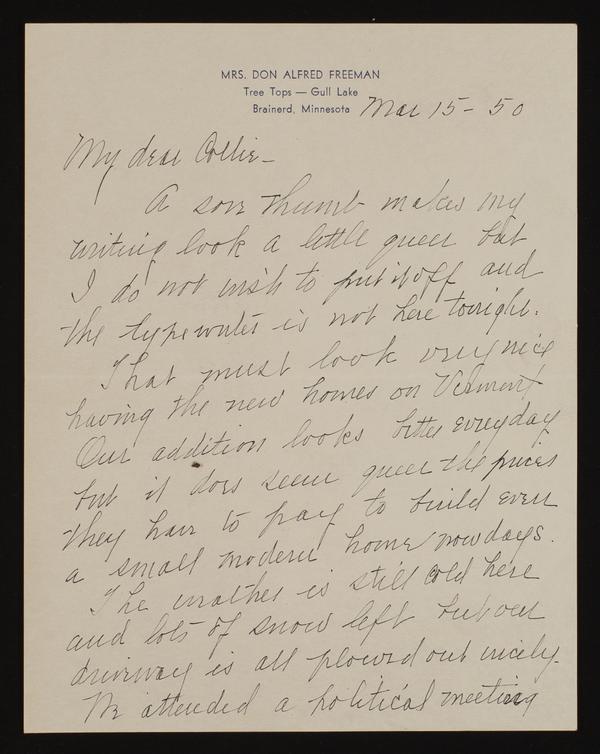 MRS. DON ALFRED FREEMAN
Tree Tops — Gull Lake
Brainerd, Minnesota
Mar 15 - 50
My dear Collie -
A sore thumb makes my
writing look a little queer but
I do not wish to put it off and
the typewriter is not here tonight.
That must look very nice
having the new homes on Vermont
Our addition looks better everyday
but it does seem queer the prices
they have to pay to build even
a small modern home nowdays.
The weather is still cold here
and lots of snow left but our
driveway is all plowed out nicely.
We attended a political meeting